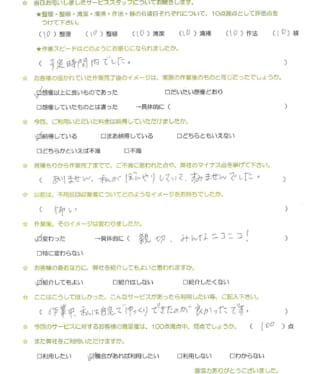 ☆ 当日お伺いしましたサービススタッフについてお聞きします。
★整理・整頓・清潔・清掃・作法・躾の6項目それぞれについて、10点満点として評価点をつけて下さい。
(10) 整理 (10) 整頓 (10) 清潔 (10) 清掃 (10) 作法 (10) 躾
★作業スピードはどのようにお感じになられましたか。
( 予定時間内でした。 )
☆ お客様の描かれていた作業完了後のイメージは、実際の作業後のものと同じだったでしょうか。
☑想像以上に良いものであった □だいたい想像どおり
□想像していたものとは違った →具体的に( )
☆ 今回、ご利用いただいた料金は納得していただけましたか。
☑納得している □まあ納得している □どちらともいえない
□どちらかといえば不満 □不満
☆ 見積もりから作業完了までで、ご不満に思われた点や、弊社のマイナス点を挙げて下さい。
( ありません。私がぼんやりしていて、すみませんでした。 )
☆ 以前は、不用品回収業者についてどのようなイメージをお持ちでしたか。
( 怖い )
☆ 作業後、そのイメージは変わりましたか。
☑変わった →具体的に( 親切、みんなニコニコ! )
□特に変わらない
☆ お客様の身近な方に、弊社を紹介してもよいと思われますか。
☑紹介してもよい □紹介はしない □紹介したくない
☆ ここはこうしてほしかった、こんなサービスがあったら利用したい等、ご記入下さい。
( 作業中、私は自宅でゆっくりできたのが良かったです。 )
☆ 今回のサービスに対するお客様の満足度は、100点満点中、何点でしょうか。 ( 100 ) 点
☆ また弊社をご利用いただけますか。
□利用したい ☑機会があれば利用したい □利用しない □わからない
ご協力ありがとうございました。